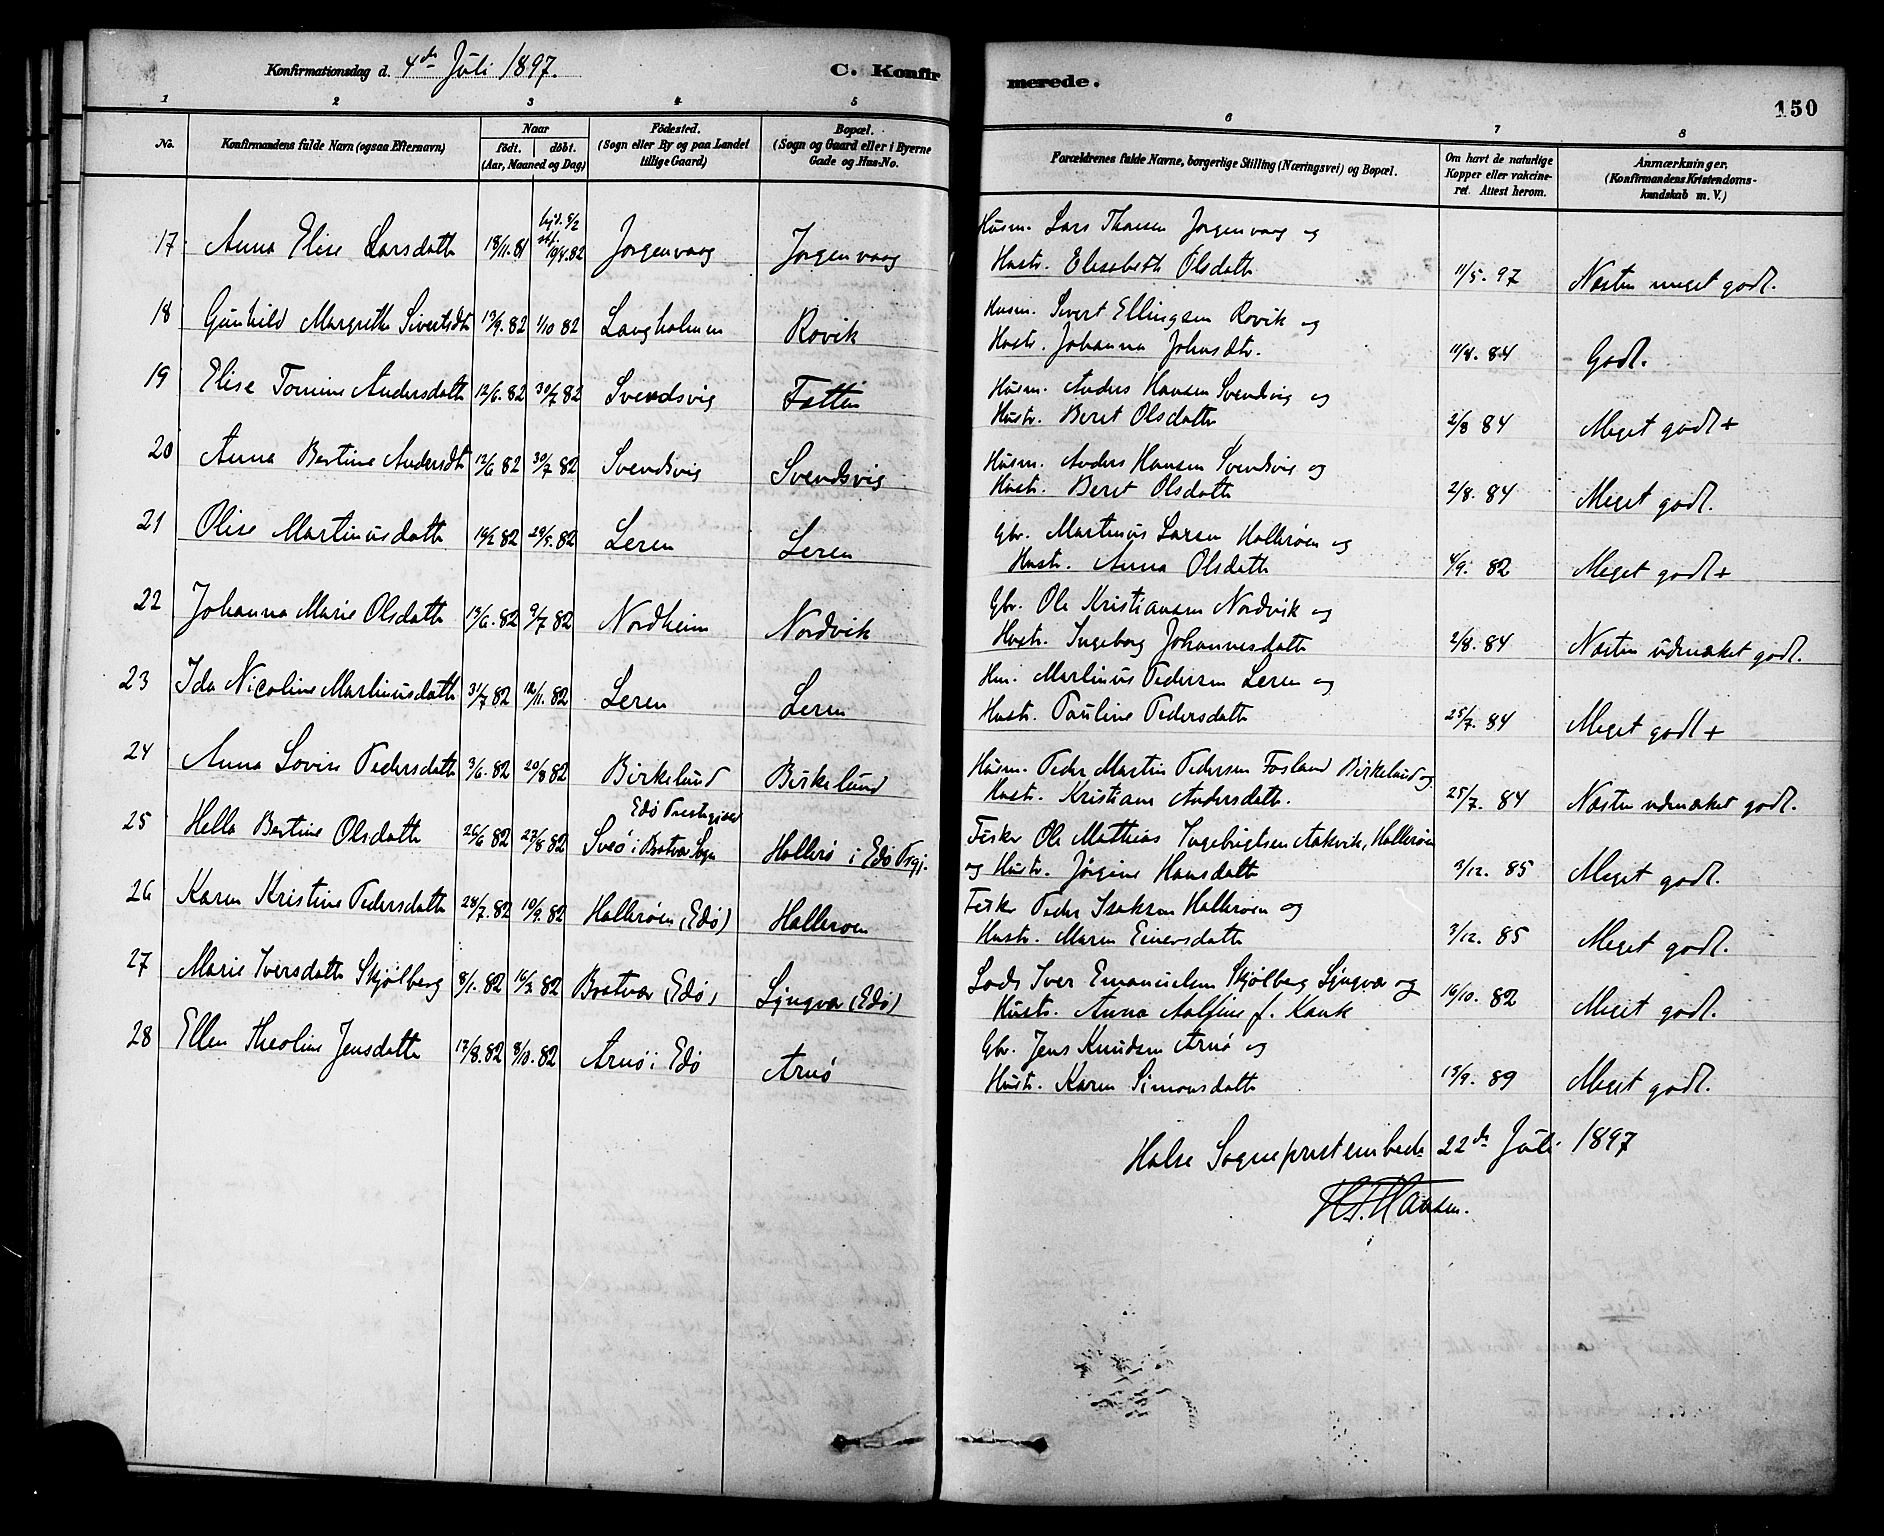 Konfirmationsdag d. 4de Juli 1897.
C. Konfirmerede.
150
1 2 3 4 5 6 7 8
No.
Konfirmandens fulde Navn (ogsaa Efternavn)
Naar
født. døbt.
(Aar, Maaned og Dag)
Fødested.
(Sogn eller By og paa Landet
tillige Gaard)
Bopæl.
(Sogn og Gaard eller i Byerne
Gade og Hus-No.
Forældrenes fulde Navne, borgerlige Stilling (Næringsvei) og Bopæl.
Om havt de naturlige
Kopper eller vakcine-
ret. Attest herom.
Anmærkninger,
(Konfirmandens Kristendoms-
kundskab m. V.)
17 Anna Elise Larsdatte 18/11. 81 hjd. 5/2 stf. 10/4. 82 Jørgenvaag Jørgenvaag Husm. Lars Jørgenvaag og
Hustr. Elisabeth Olsdatte 11/5. 97 Næsten meget godt.
18 Gunhild Margrethe Sivertsdtr 13/9. 82 1/10 82 Langholmen Rovik Husm. Sivert Ellingsen Rovik og
Hustr. Johanna Johnsdtr. 11/8. 84 Godt.
19 Elise Tomine Andersdatte 12/6. 82 30/7 82 Svendsvig Fætten Husm. Anders Hansen Svendsvig og
Hustr. Beret Olsdatte 2/8 84 Meget godt +
20 Anna Bertine Andersdtr 12/6 82 30/7 82 Svendsvig Svendsvig Husm. Anders Hansen Svendsvig og
Hustr. Beret Olsdatte 2/8. 84 Meget godt.
21 Olise Martinusdatte 14/2 82 29/5. 82 Leren Leren Gbr. Martinus Larsen Hallerøen og
Hustr. Anna Olsdatte 4/9. 82 Meget godt +
22 Johanna Marie Olsdatte 13/6. 82 9/7 82 Nordheim Nordvik Gbr. Ole Kristiansen Nordvik og
Hustr. Ingeborg Johannesdatte 2/8. 84 Næsten udmæket godt.
23 Ida Nicoline Martinusdatte 31/7 82 12/11. 82 Leren Leren Hm. Martinus Pedersen Leren og
Hustr. Pauline Pedersdatte 25/7. 84 Meget godt +
24 Anna Lovise Pedersdatte 3/6. 82 20/8 82 Birkelund Birkelund Husm. Peder Martin Pedersen Fosland Birkelund og
Hustr. Kristiane Andersdatte. 25/7. 84 Næsten udmæket godt.
25 Hella Bertine Olsdatte 26/6 82 27/8 82 Edø Prestegjeld
Sveø i Bratvær Sogn Hallerø i Edø Prgj. Fisker Ole Mathias Ingebrigtsen Aakvik, Hallerøen
og Hustr. Jørgine Hansdatte 3/12. 85 Meget godt.
26 Karen Kristine Pedersdatte 28/7. 82 10/9. 82 Hallerøen (Edø) Hallerøen Fisker Peder Isaksen Hallerøen og
Hustr. Maren Einersdatte 3/12. 85 Meget godt.
27 Marie Iversdatte Skjølberg 8/1. 82 16/2 82 Bratvær (Edø) Lyngvær (Edø) Lods Iver Emanuelsen Skjølberg Lyngvær og
Hustr. Anna Aalfine f. Kauk 16/10. 82 Meget godt.
28 Ellen Theoline Jensdatte 13/8. 82 8/10. 82 Arnø i Edø Arnø Gbr. Jens Knudsen Arnø og
Hustr. Karen Simonsdatte 13/9. 89 Meget godt.
Halse Sogneprestembede 22de Juli 1897
Hansen.